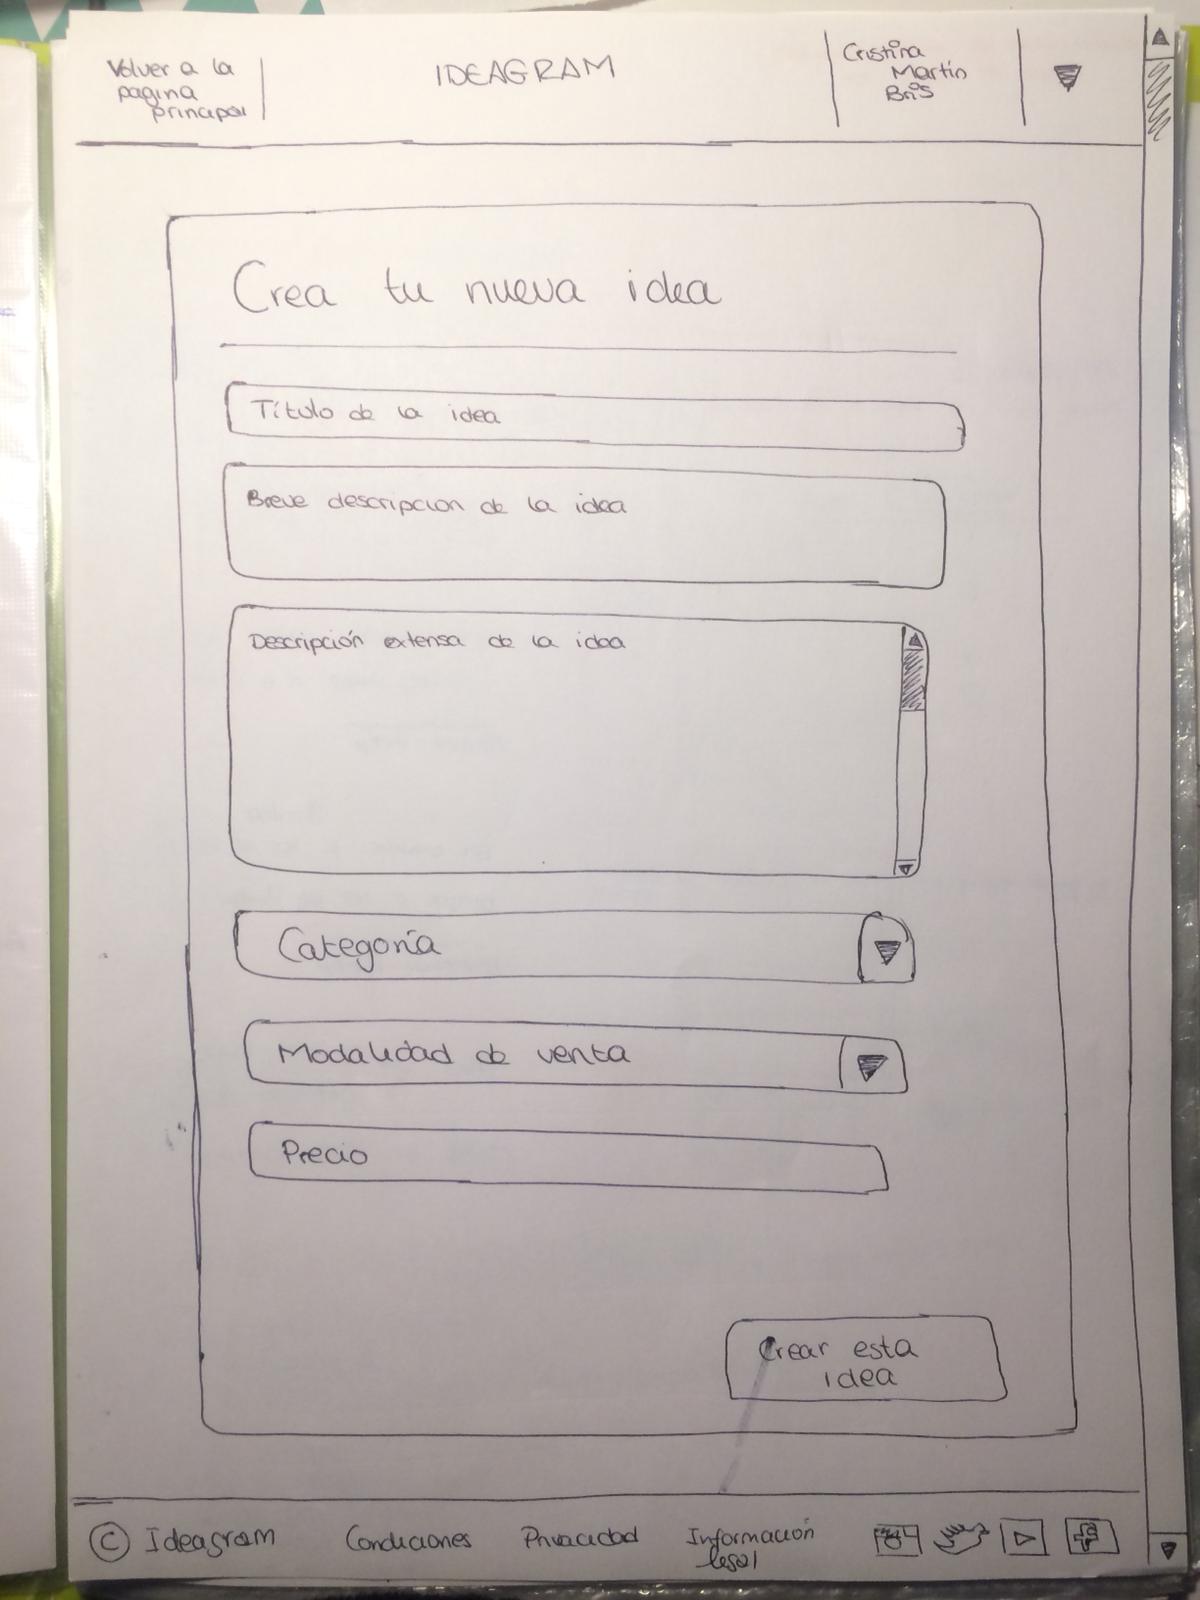 Volver a la
pagina
principal
IDEAGRAM
Cristina
Martín
Bris
Crea tu nueva idea
Título de la idea
Breve descripcion de la idea
Descripción extensa de la idea
Categoría
Modalidad de venta
Precio
Crear esta
idea
© Ideagram
Condiciones
Privacidad
Información
legal